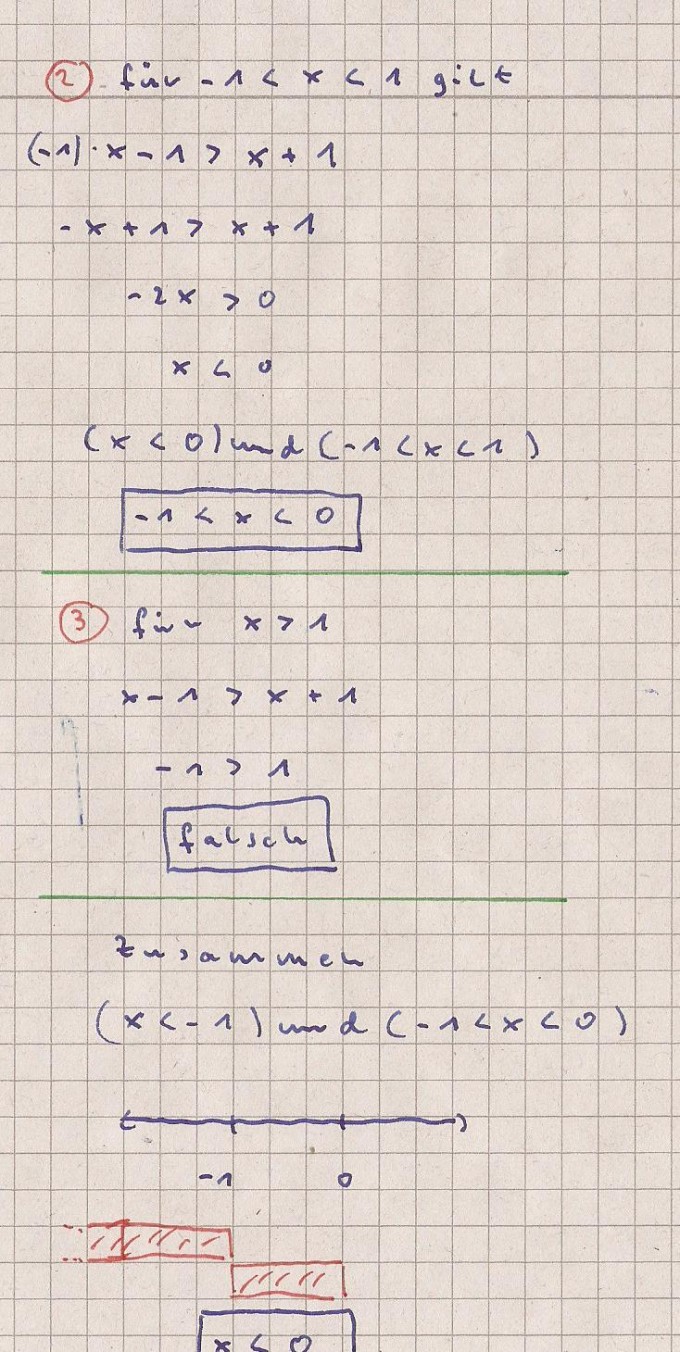 ② für -1 < x < 1 gilt
(-1)·x - 1 > x + 1
-x + 1 > x + 1
-2x > 0
x < 0
(x < 0) und (-1 < x < 1)
-1 < x < 0
③ für x > 1
x - 1 > x + 1
-1 > 1
falsch
Zusammen
(x < -1) und (-1 < x < 0)
-1 0
x < 0